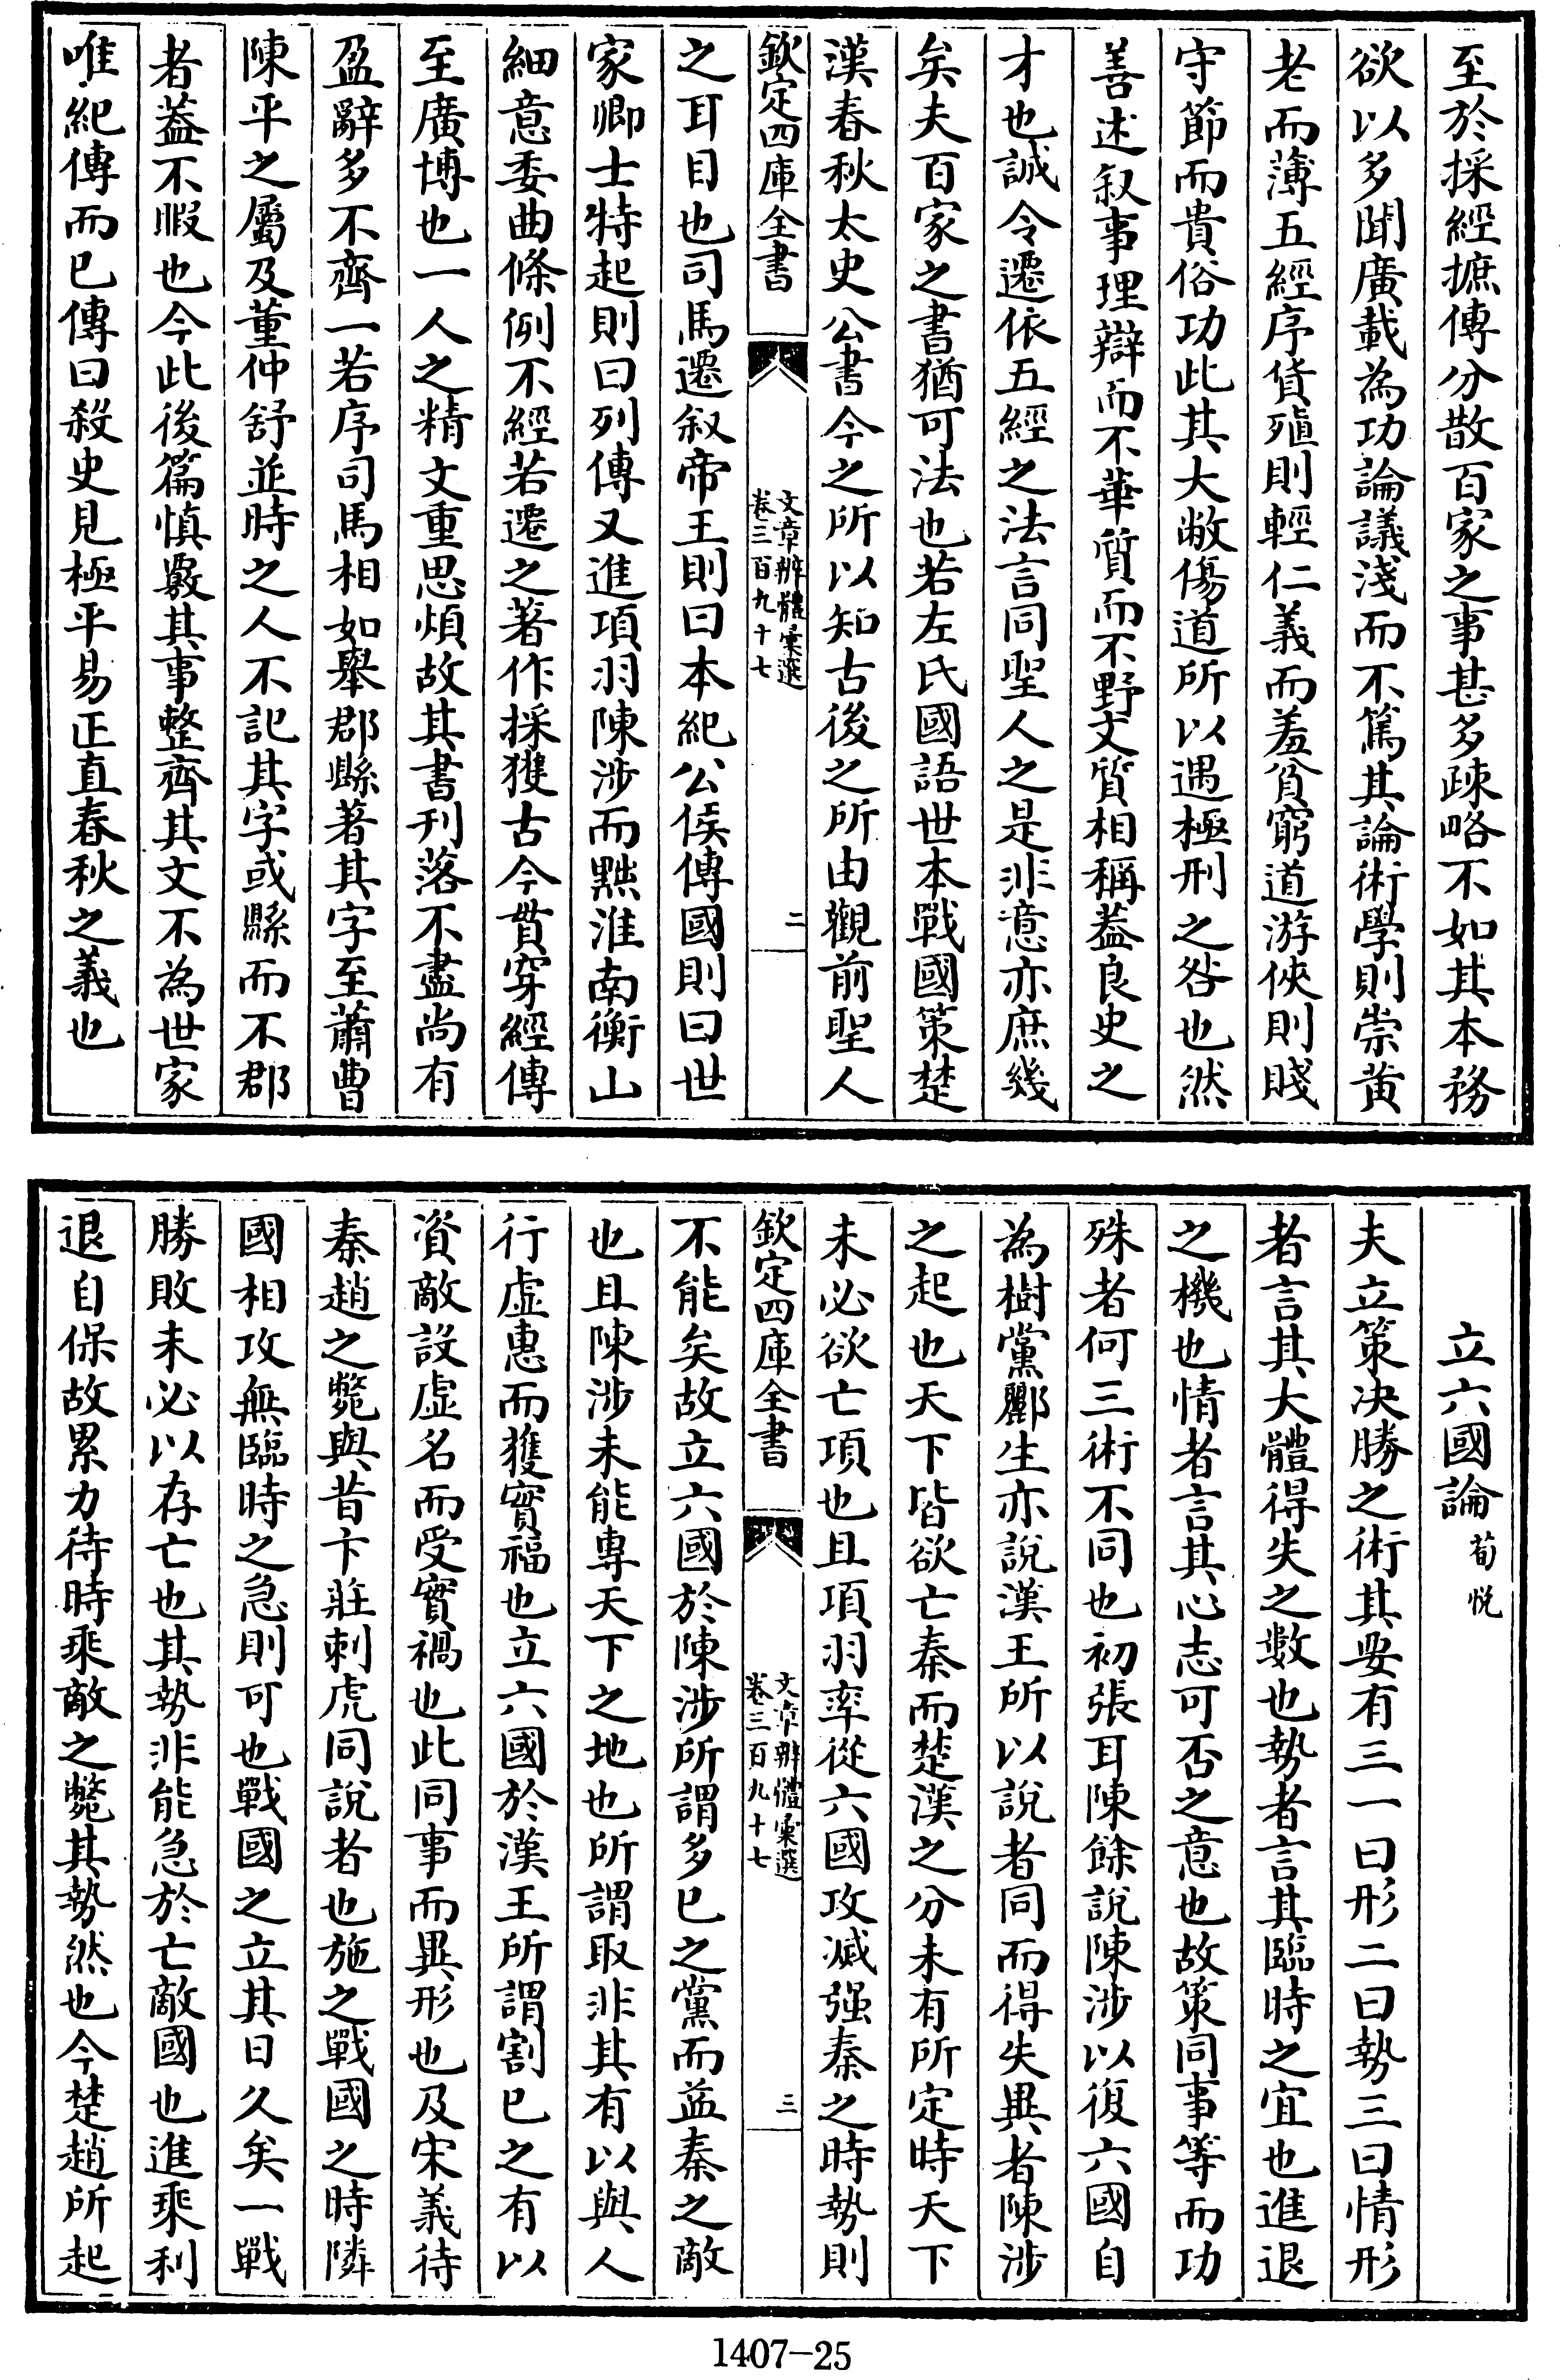 至於採經摭傳分散百家之事甚多疎略不如其本務
欲以多聞廣載為功論議淺而不篤其論術學則崇黄
老而薄五經序貨殖則輕仁義而羞貧窮道游俠則賤
守節而貴俗功此其大敝傷道所以遇極刑之咎也然
善述叙事理辯而不華質而不野文質相稱葢良史之
才也誠令遷依五經之法言同聖人之是非意亦庶幾
矣夫百家之書猶可法也若左氏國語世本戰國策楚
漢春秋太史公書今之所以知古後之所由觀前聖人
欽定四庫全書
文章辨體彙選
卷三百九十七
二
之耳目也司馬遷叙帝王則曰本紀公侯傳國則曰世
家卿士特起則曰列傳又進項羽陳涉而黜淮南衡山
細意委曲條例不經若遷之著作採獲古今貫穿經傳
至廣博也一人之精文重思煩故其書刋落不盡尚有
盈辭多不齊一若序司馬相如舉郡縣著其字至蕭曹
陳平之屬及董仲舒並時之人不記其字或縣而不郡
者葢不暇也今此後篇慎覈其事整齊其文不為世家
唯紀傳而已傳曰殺史見極平易正直春秋之義也
立六國論 荀悅
夫立策决勝之術其要有三一曰形二曰勢三曰情形
者言其大體得失之數也勢者言其臨時之宜也進退
之機也情者言其心志可否之意也故策同事等而功
殊者何三術不同也初張耳陳餘說陳涉以復六國自
為樹黨酈生亦說漢王所以說者同而得失異者陳涉
之起也天下皆欲亡秦而楚漢之分未有所定時天下
未必欲亡項也且項羽率從六國攻滅强秦之時勢則
欽定四庫全書
文章辨體彙選
卷三百九十七
三
不能矣故立六國於陳涉所謂多已之黨而益秦之敵
也且陳涉未能專天下之地也所謂取非其有以與人
行虛惠而獲實福也立六國於漢王所謂割已之有以
資敵設虛名而受實禍也此同事而異形也及宋義待
秦趙之斃與昔卞莊刺虎同說者也施之戰國之時隣
國相攻無臨時之急則可也戰國之立其日久矣一戰
勝敗未必以存亡也其勢非能急於亡敵國也進乘利
退自保故累力待時乘敵之斃其勢然也今楚趙所起
1407-25